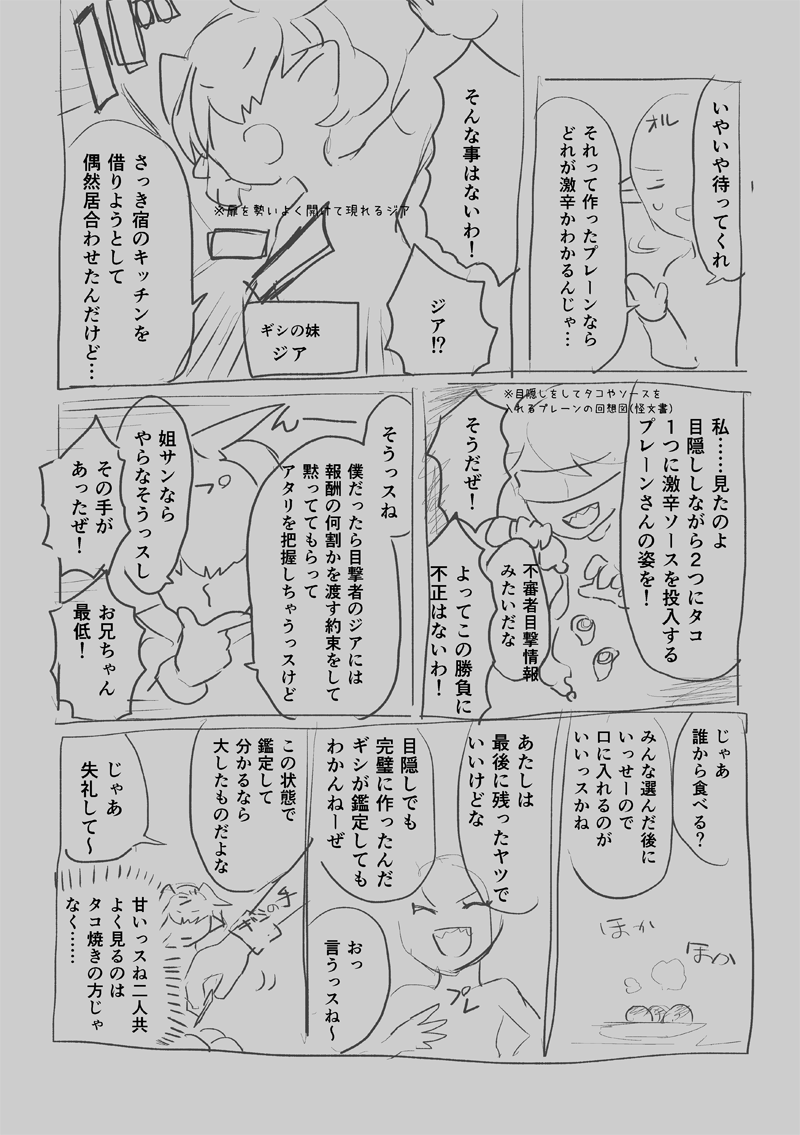 いやいや待ってくれ
オル
それって作ったプレーンなら
どれが激辛かわかるんじゃ…
そんな事はないわ！
ジア⁉
※扉を勢いよく開けて現れるジア
ギシの妹
ジア
さっき宿のキッチンを
借りようとして
偶然居合わせたんだけど…
※目隠しをしてタコやソースを
入れるプレーンの回想図(怪文書)
私……見たのよ
目隠ししながら２つにタコ
１つに激辛ソースを投入する
プレーンさんの姿を！
そうだぜ！
不審者目撃情報
みたいだな
よってこの勝負に
不正はないわ！
んー
そうっスね
僕だったら目撃者のジアには
報酬の何割かを渡す約束をして
黙っててもらって
アタリを把握しちゃうっスけど
姐サンなら
やらなそうっスし
その手が
あったぜ！
お兄ちゃん
最低！
じゃあ
誰から食べる？
みんな選んだ後に
いっせーので
口に入れるのが
いいっスかね
ほか
ほか
あたしは
最後に残ったヤツで
いいけどな
目隠しでも
完璧に作ったんだ
ギシが鑑定しても
わかんねーぜ
プレ
おっ
言うっスね～
この状態で
鑑定して
分かるなら
大したものだよな
じゃあ
失礼して～
ギシの手
甘いっスね二人共
よく見るのは
タコ焼きの方じゃ
なく……